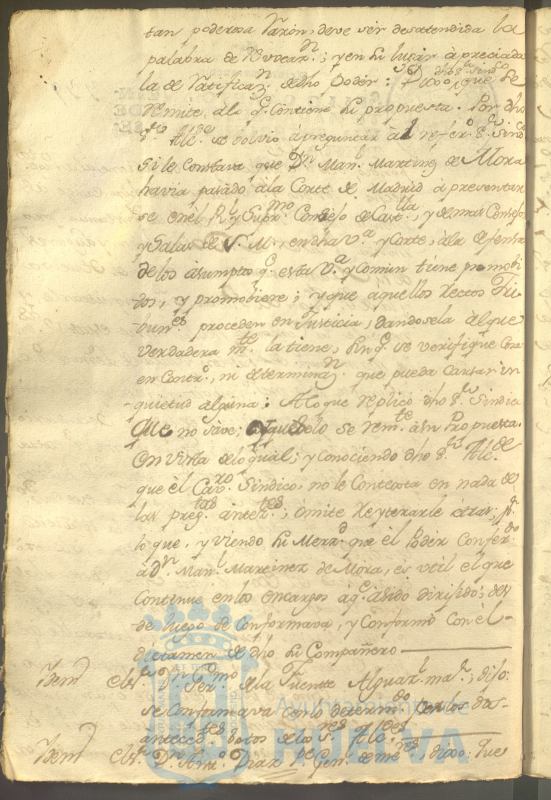 tan poderosa razon, deve ser desatendida la
palabra de Revocar.n; y en su lugar apreciada
la de Ratificaz.n de dho Poder: que se
remite, al q.e contiene su propuesta. Por dho
s.r Alc.de se volvio a preguntar al refer.o s.r Sindico
Si le Constava que D.n Man.l Martinez de Mora
havia pasado à la Corte de Madrid à presentar
se en el R.l y Supr.mo Consejo de Cast.lla, y demas Consejos
y Salas de S. M., en dha V.a y Corte, à la defensa
de los asumptos q.e esta V.a y Comun tiene promobi
dos, y promobiere; y que aquellos Rectos Tri
bun.es proceden en Justicia, dandosela al que
verdadera m.te la tiene, sin q.e se verifique Cosa
en Contr.o, ni determinaz.n que pueda causar in
quietud alguna: A lo que replicó dho s.r Sindico
Que no save; y que solo se rem.te à su Propuesta.
En vista de lo qual; y conociendo dho s.r Alc.de
que èl Cav.ro Sindico, no le Contexta en nada de
las preg.tas antez.tes; omite reyterarle otras; p.r
lo que, y viendo su Merz.d que el Poder Confer.do
à D.n Man.l Martinez de Mora, es util el que
Continue en los encargos à q.e a sido dirijido; des
de luego se Conformava, y Conformó Con èl
dictamen de dho su Compañero
Item el s.r D.n la Fuente Alguaz.l ma.r; dijo:
se Conformava con lo determ.do Con los dos
anteced.tes votos de los s.res Alc.des
Item el s.r D.n Ant.o Diaz P.r Gen.l de me.res dixo: Que
Ayuntamiento de
HUELVA